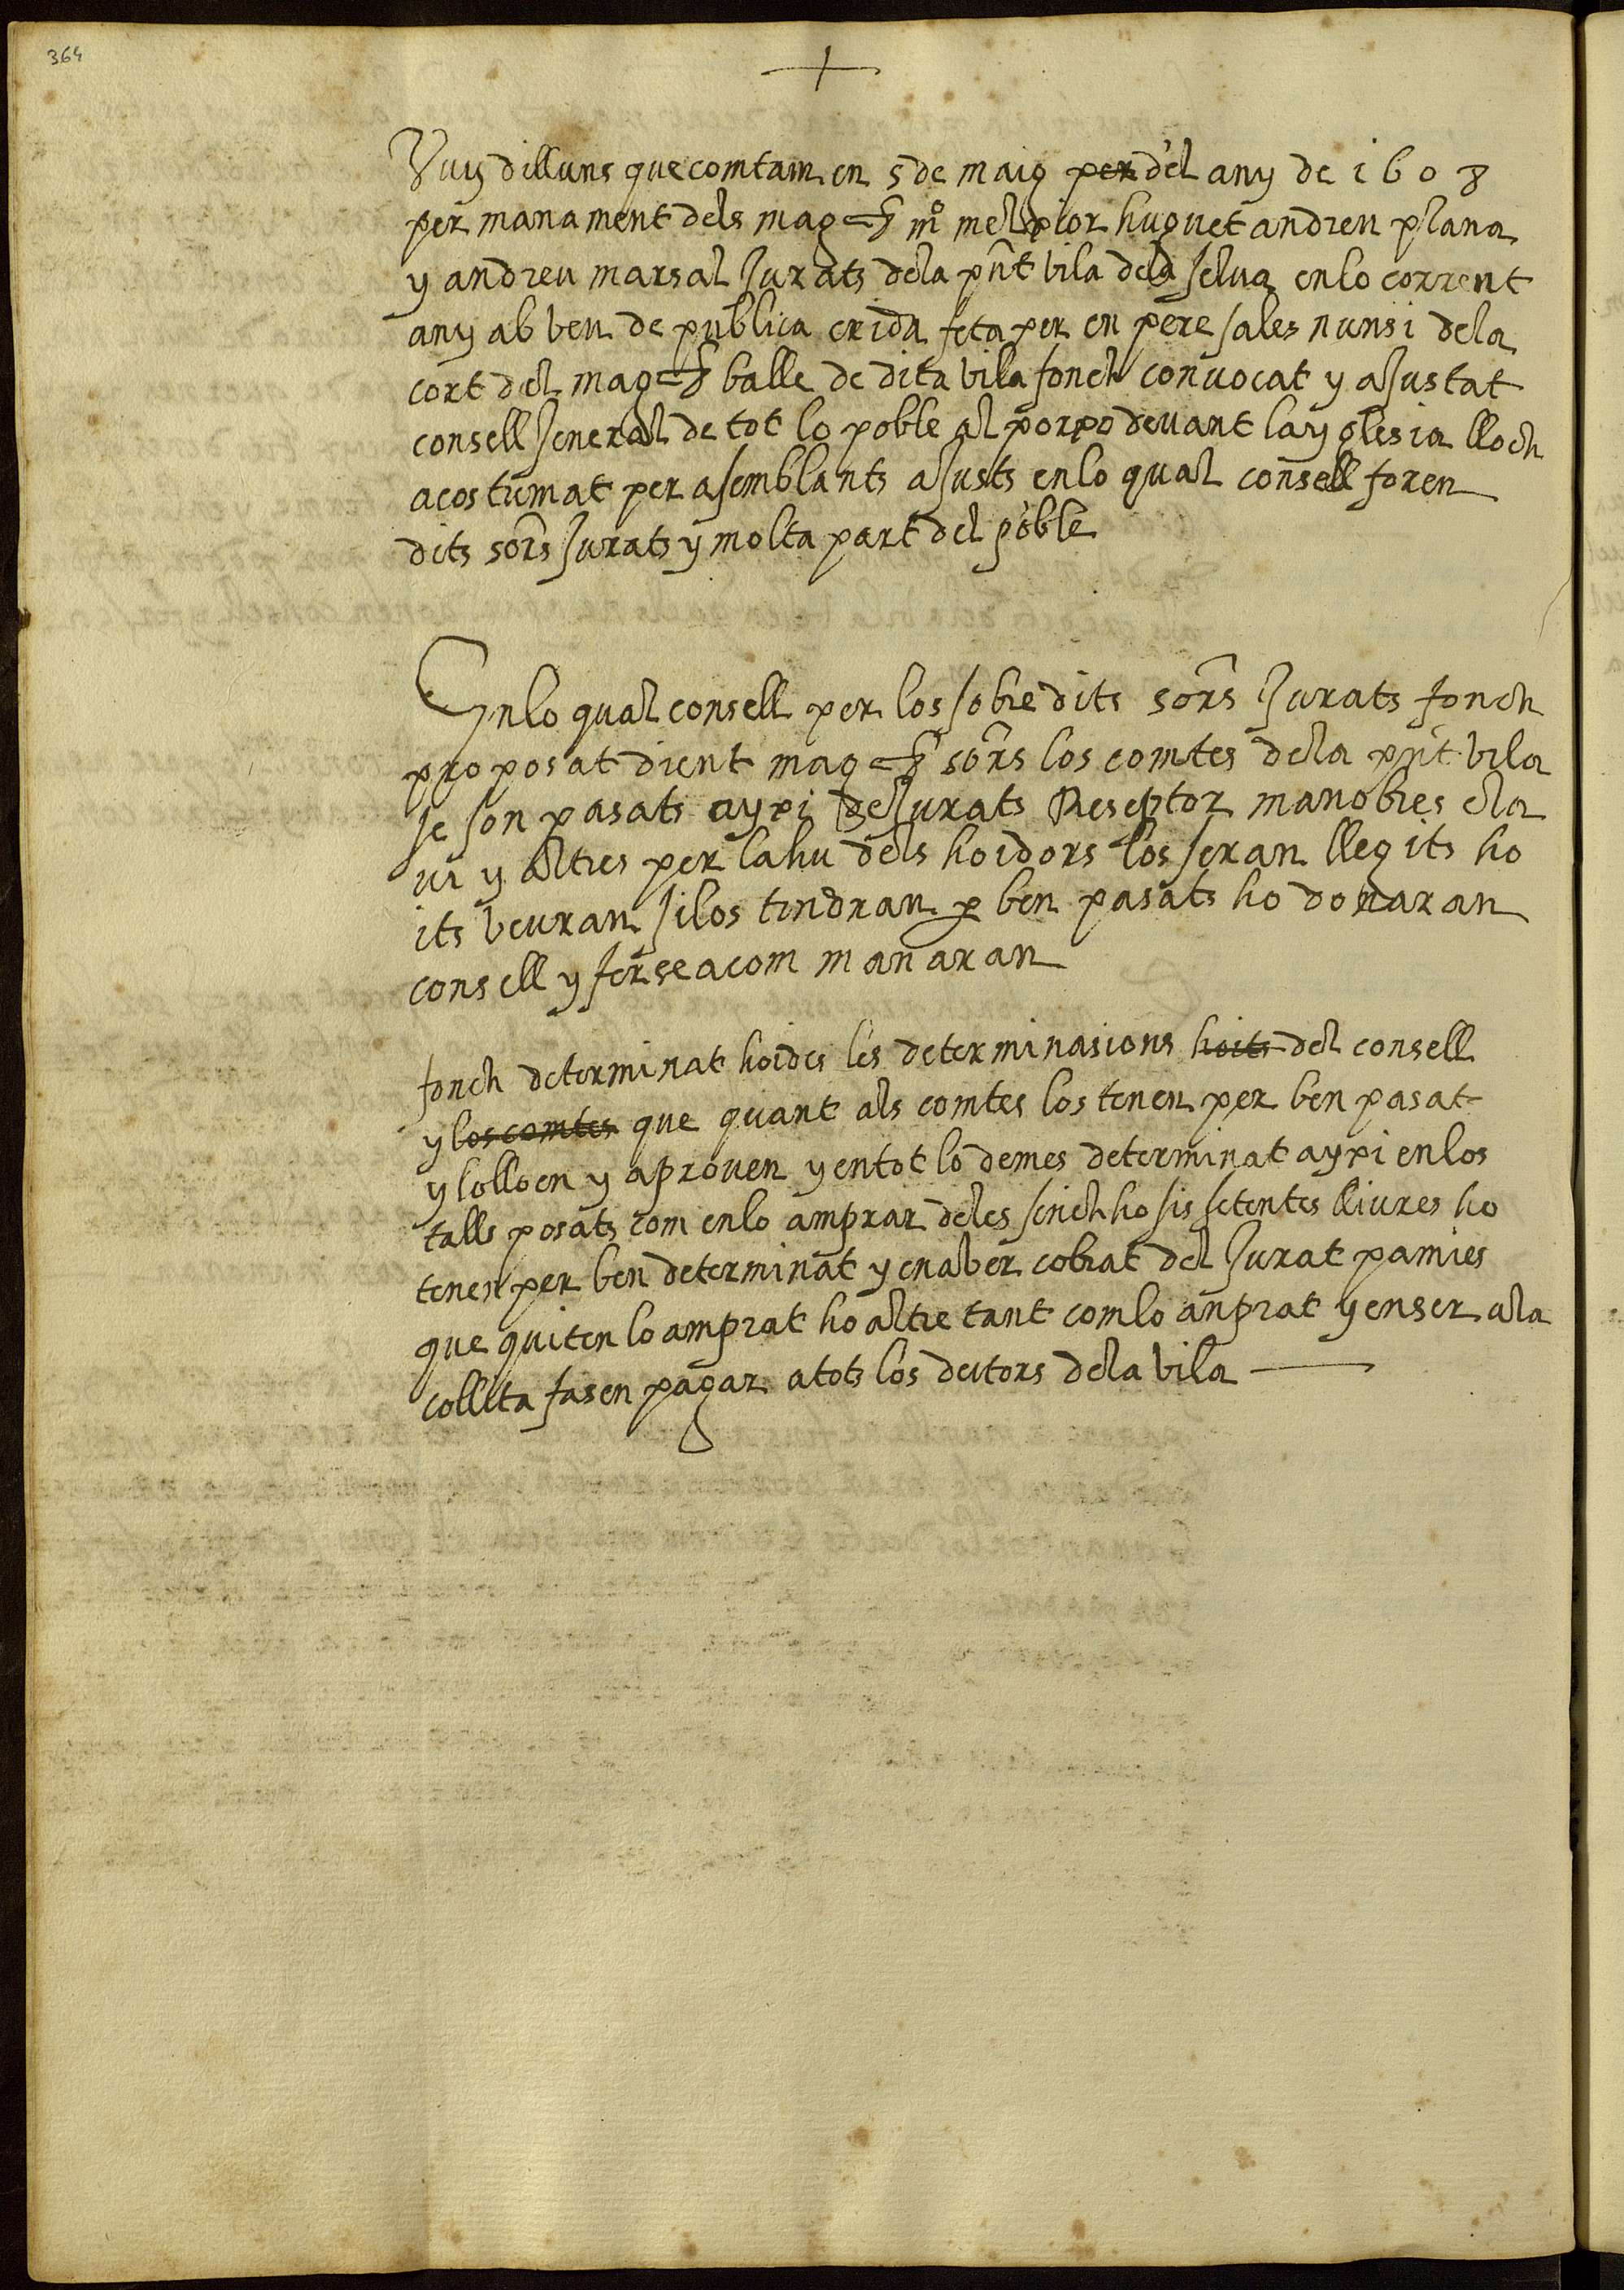 364
Vuy dilluns que comtam en 5 de maig per del any de 1608
per manament dels mag<sup>chs</sup> m<sup>o</sup> melchior huguet andreu plana
y andreu marsal Jurats dela pñt vila dela selva enlo corrent
any ab veu de publica crida feta per en pere sales nunsi dela
cort del mag<sup>ch</sup> balle de dita vila fonch convocat y ajustat
consell Jeneral de tot lo poble al porxo devant la yglesia lloch
acostumat per asemblants ajusts enlo qual consell foren
dits sors Jurats y molta part del poble
Enlo qual consell per los sobredits sors Jurats fonch
proposat dient mag<sup>chs</sup> sors los comtes dela pñt vila
se son pasats ayxi de Jurats Reseptor manobres cla
vi y altres per la hu dels hoidors los seran llegits ho
its veuran silos tindran per ben pasats ho donaran
consell y ferse a com manaran
fonch determinat hoides les determinasions hoits del consell
y los comtes que quant als comtes los tenen per ben pasat
y lolloen y aproven y entot lo demes determinat ayxi enlos
talls posats com enlo amprar deles sinch ho sis setentes lliures ho
tenen per ben determinat y enaber cobrat del Jurat pamies
que quiten lo amprat ho altre tant com lo anprat y enser ala
colleta fasen pagar atots los deutors dela vila